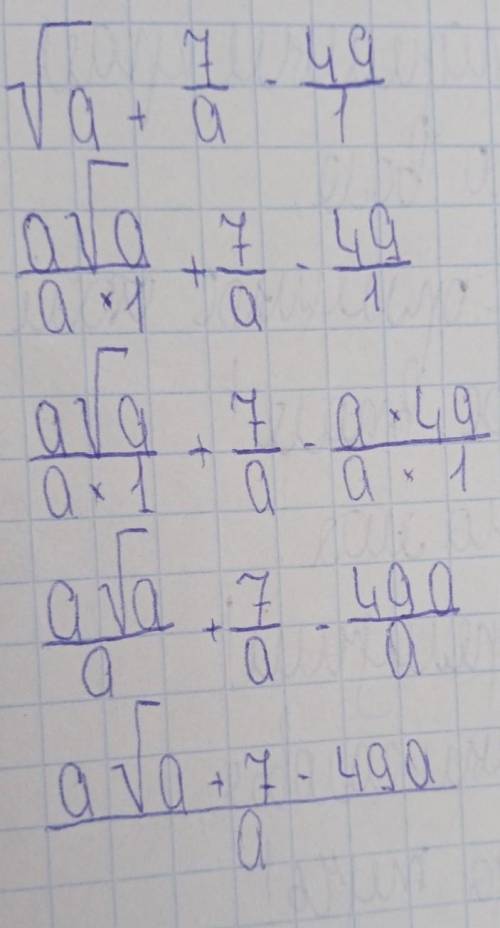 √a + 7/a - 49/1
a√a/a×1 + 7/a - 49/1
a√a/a×1 + 7/a - a×49/a×1
a√a/a + 7/a - 49a/a
a√a + 7 - 49a/a